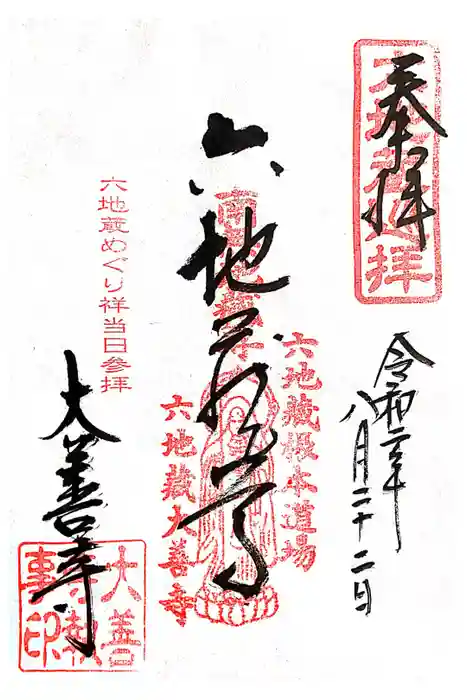 奉拝
六地蔵巡拝
令和年
八月二十二日
六地蔵根本道場
六地蔵尊
六地蔵大善寺
六地蔵めぐり祥当日参拝
大善寺
大善
寺執
事印